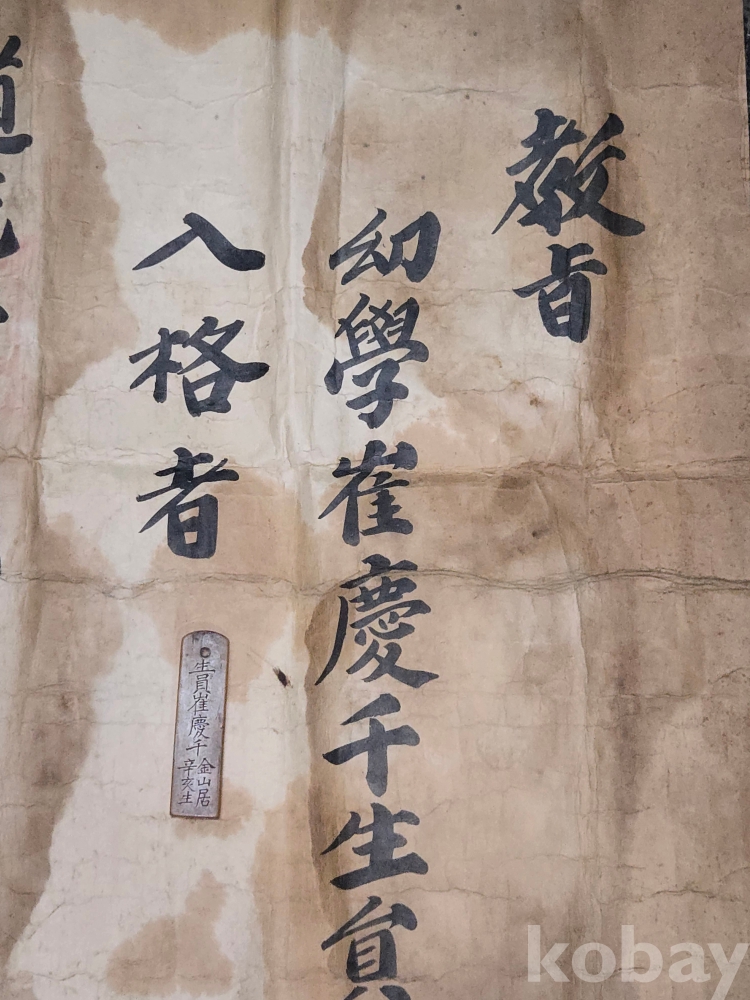 教旨
幼學崔慶千生員
入格者
生員崔慶千
金山居
辛亥生
道光
kobay